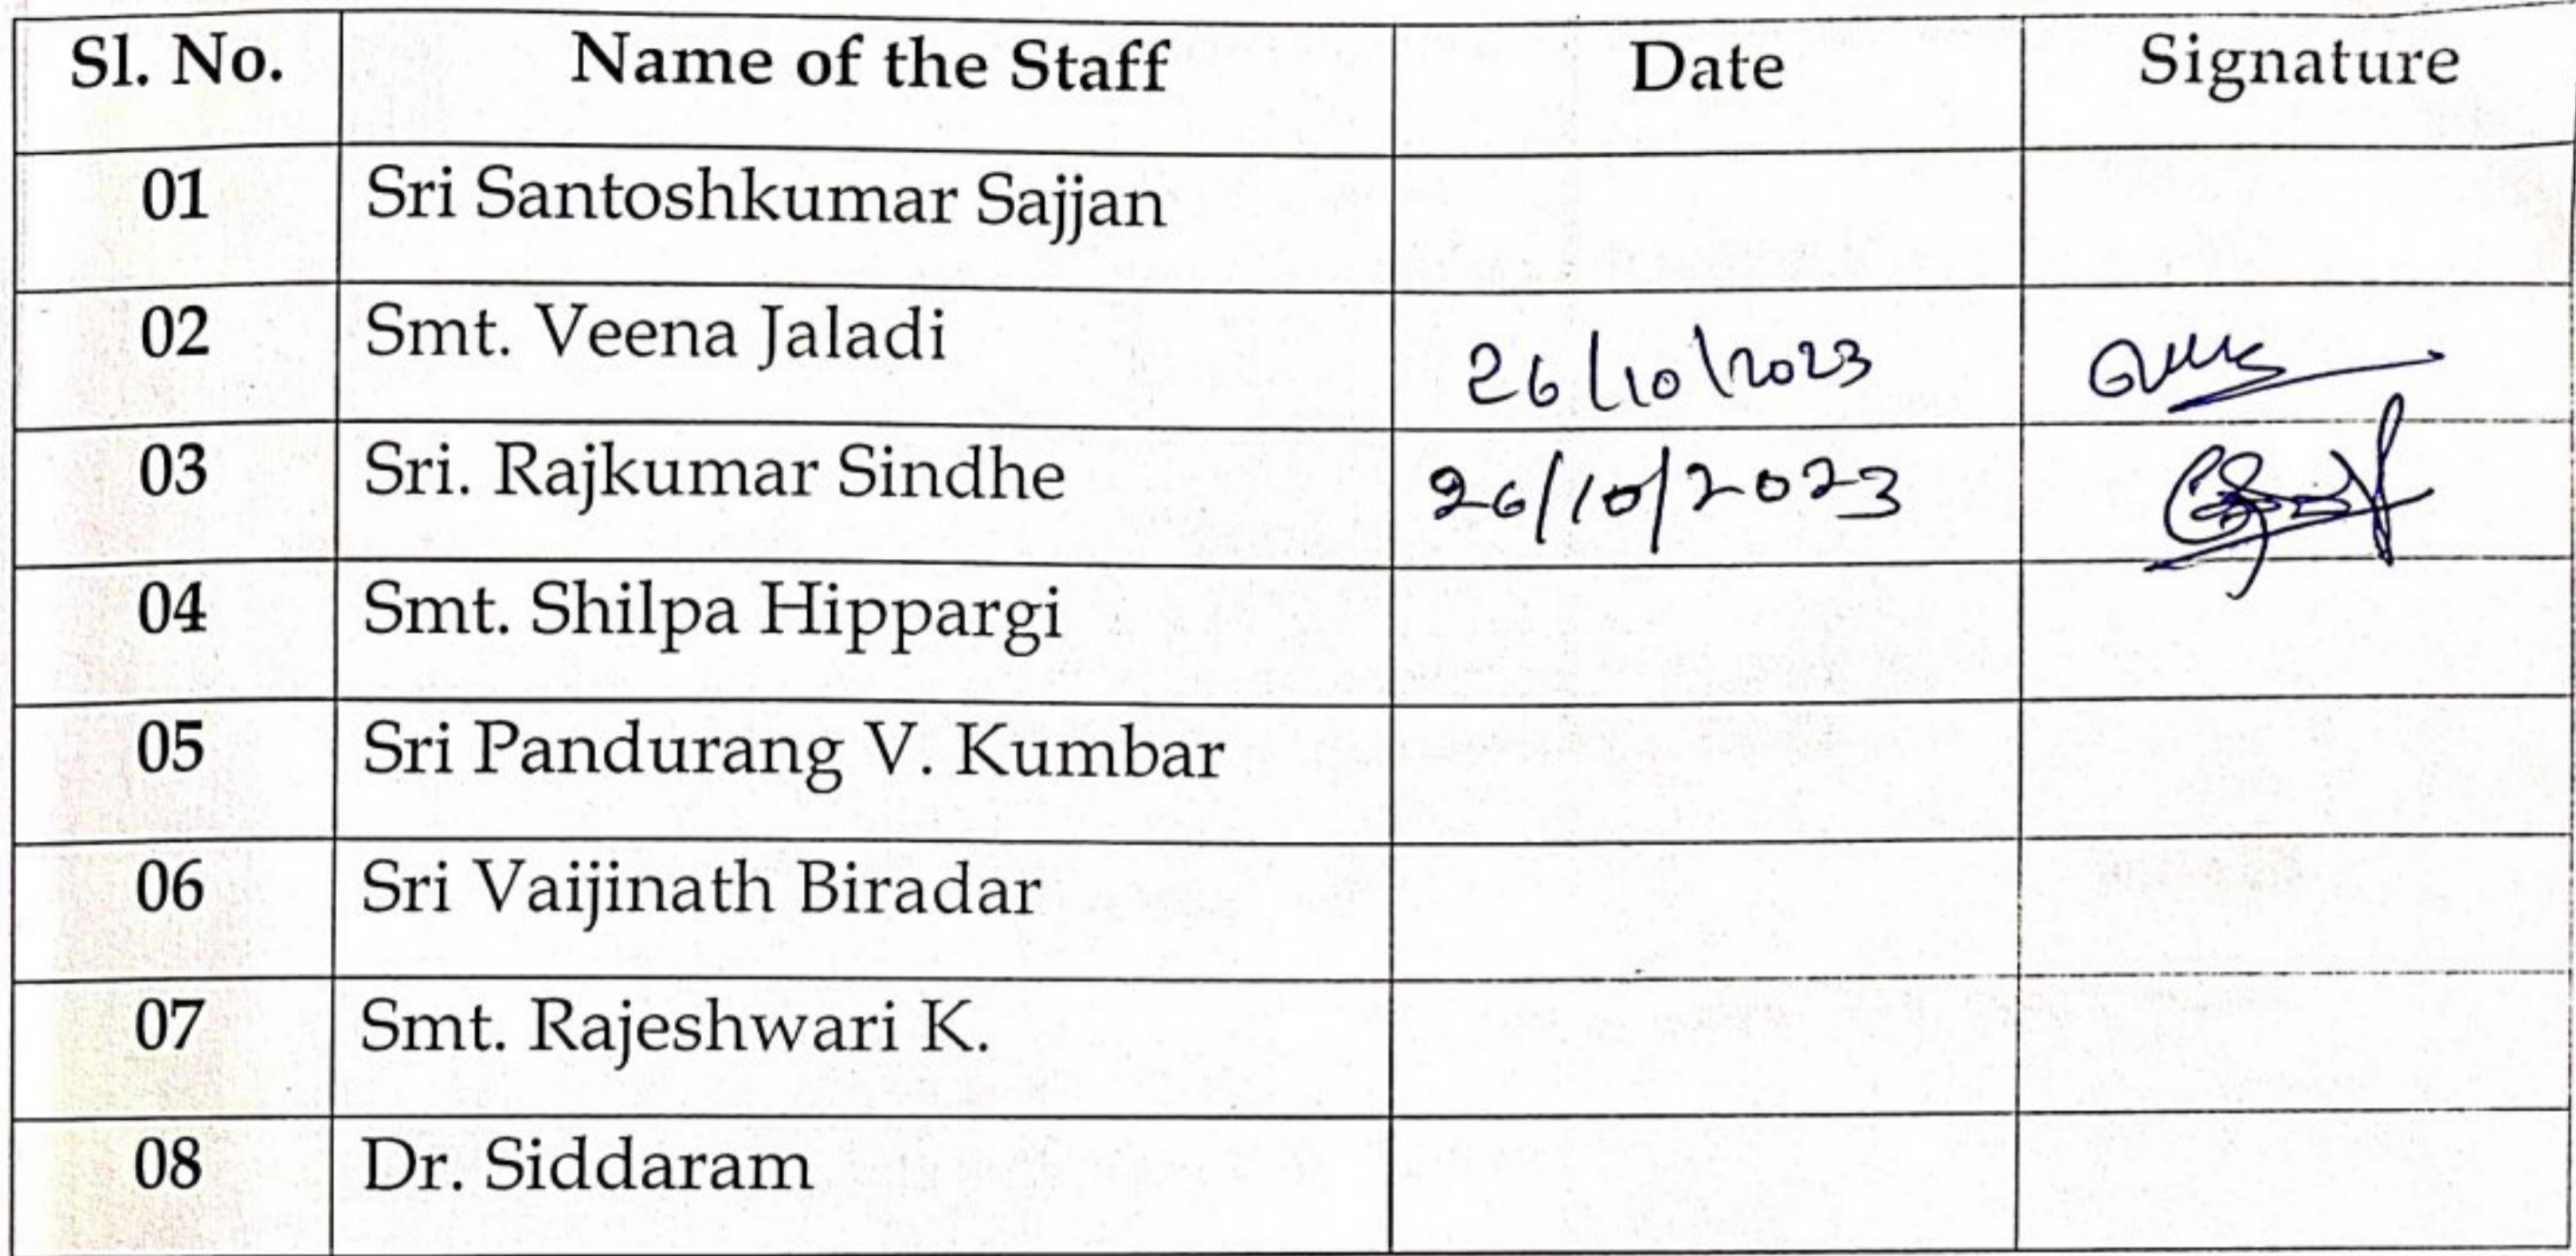 Sl. No. Name of the Staff Date Signature
01 Sri Santoshkumar Sajjan
02 Smt. Veena Jaladi 26/10/2023
03 Sri. Rajkumar Sindhe 26/10/2023
04 Smt. Shilpa Hippargi
05 Sri Pandurang V. Kumbar
06 Sri Vaijinath Biradar
07 Smt. Rajeshwari K.
08 Dr. Siddaram